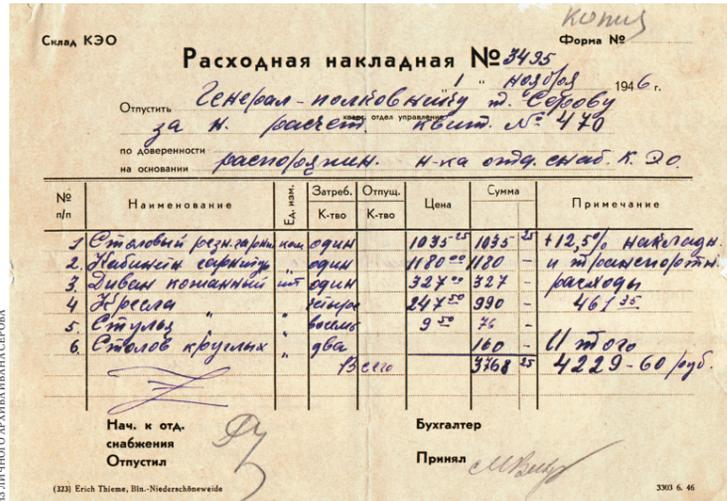 копия
Склад КЭО Форма №
Расходная накладная № 3495
1 " ноября 1946 г.
Отпустить Генерал-полковнику т. Серову
кварт. отдел управления
за н. расчет, квит. № 470
по доверенности
на основании распоряжен. н-ка отд. снаб. К.Э.о.
№ п/п Наименование Ед. изм. Затреб. К-тво Отпущ. К-тво Цена Сумма Примечание
1 Столовый резн. гарни ком один 1035-25 1035-25 +12,5% накладн.
2. Кабинетн гарнитур " один 1180 00 1180 - и транспортн.
3 Диван кожанный шт один 327 00 327 - расходы
4 Кресла " " четыре 247 50 990 - 461 35
5. Стулья " " восемь 9 50 76 - Итого
6. Столов круглых " два 160 - 4229-60 руб.
Всего 3768 25
Нач. к отд.
снабжения
Отпустил
Бухгалтер
Принял
(323) Erich Thieme, Bln.-Niederschöneweide 3303 6. 46
ИЗ ЛИЧНОГО АРХИВА ИВАНА СЕРОВА